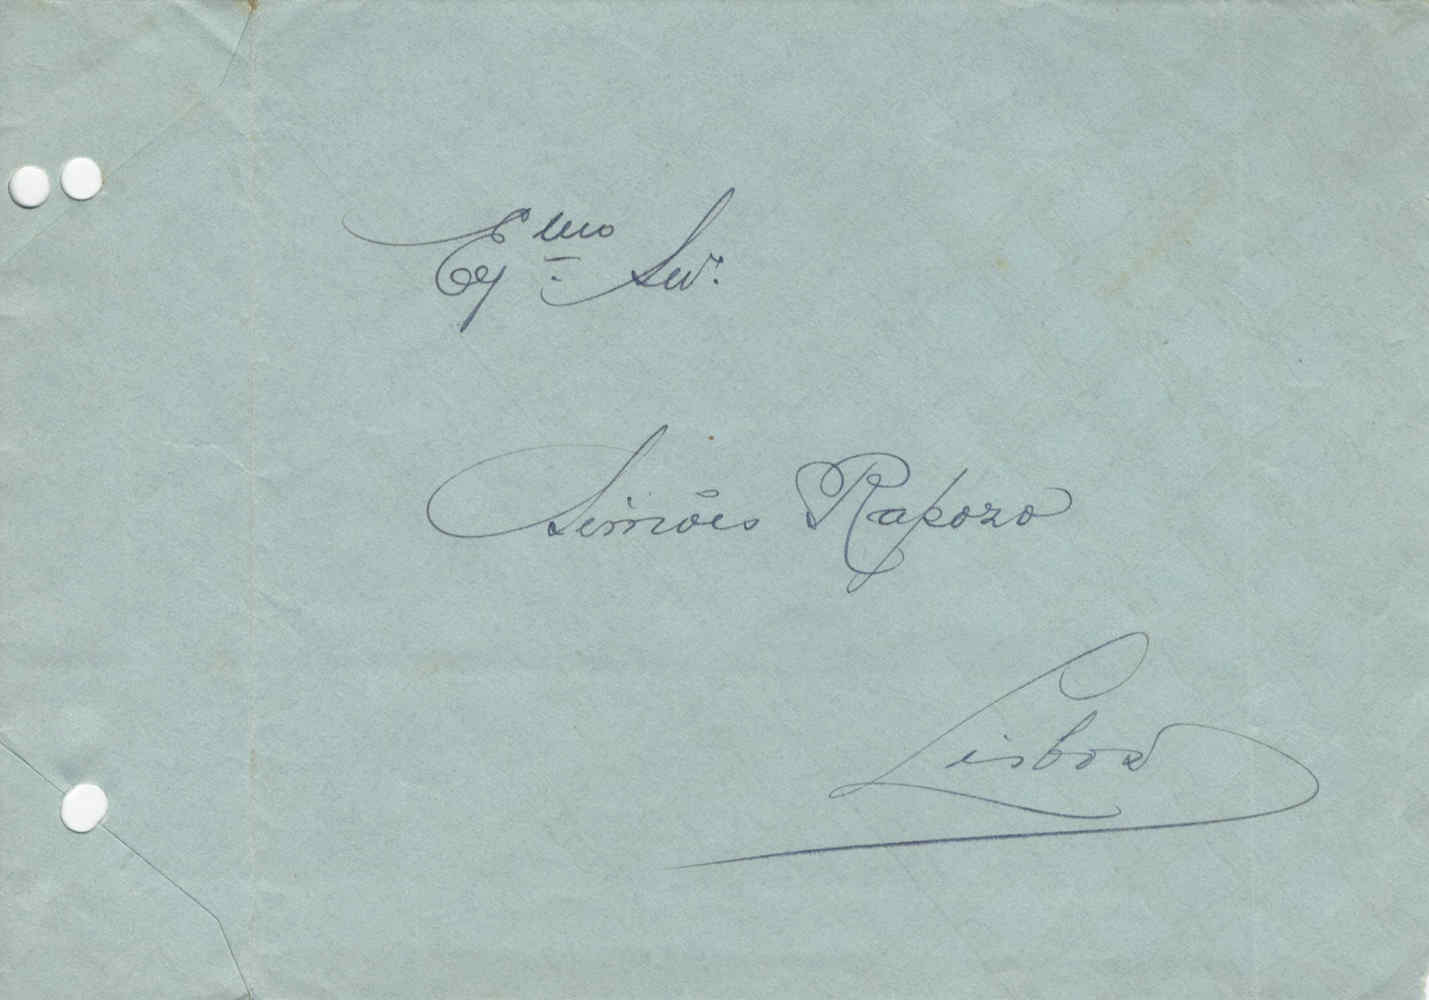 Ex.mo Snr.
Simões Rapozo
Lisboa